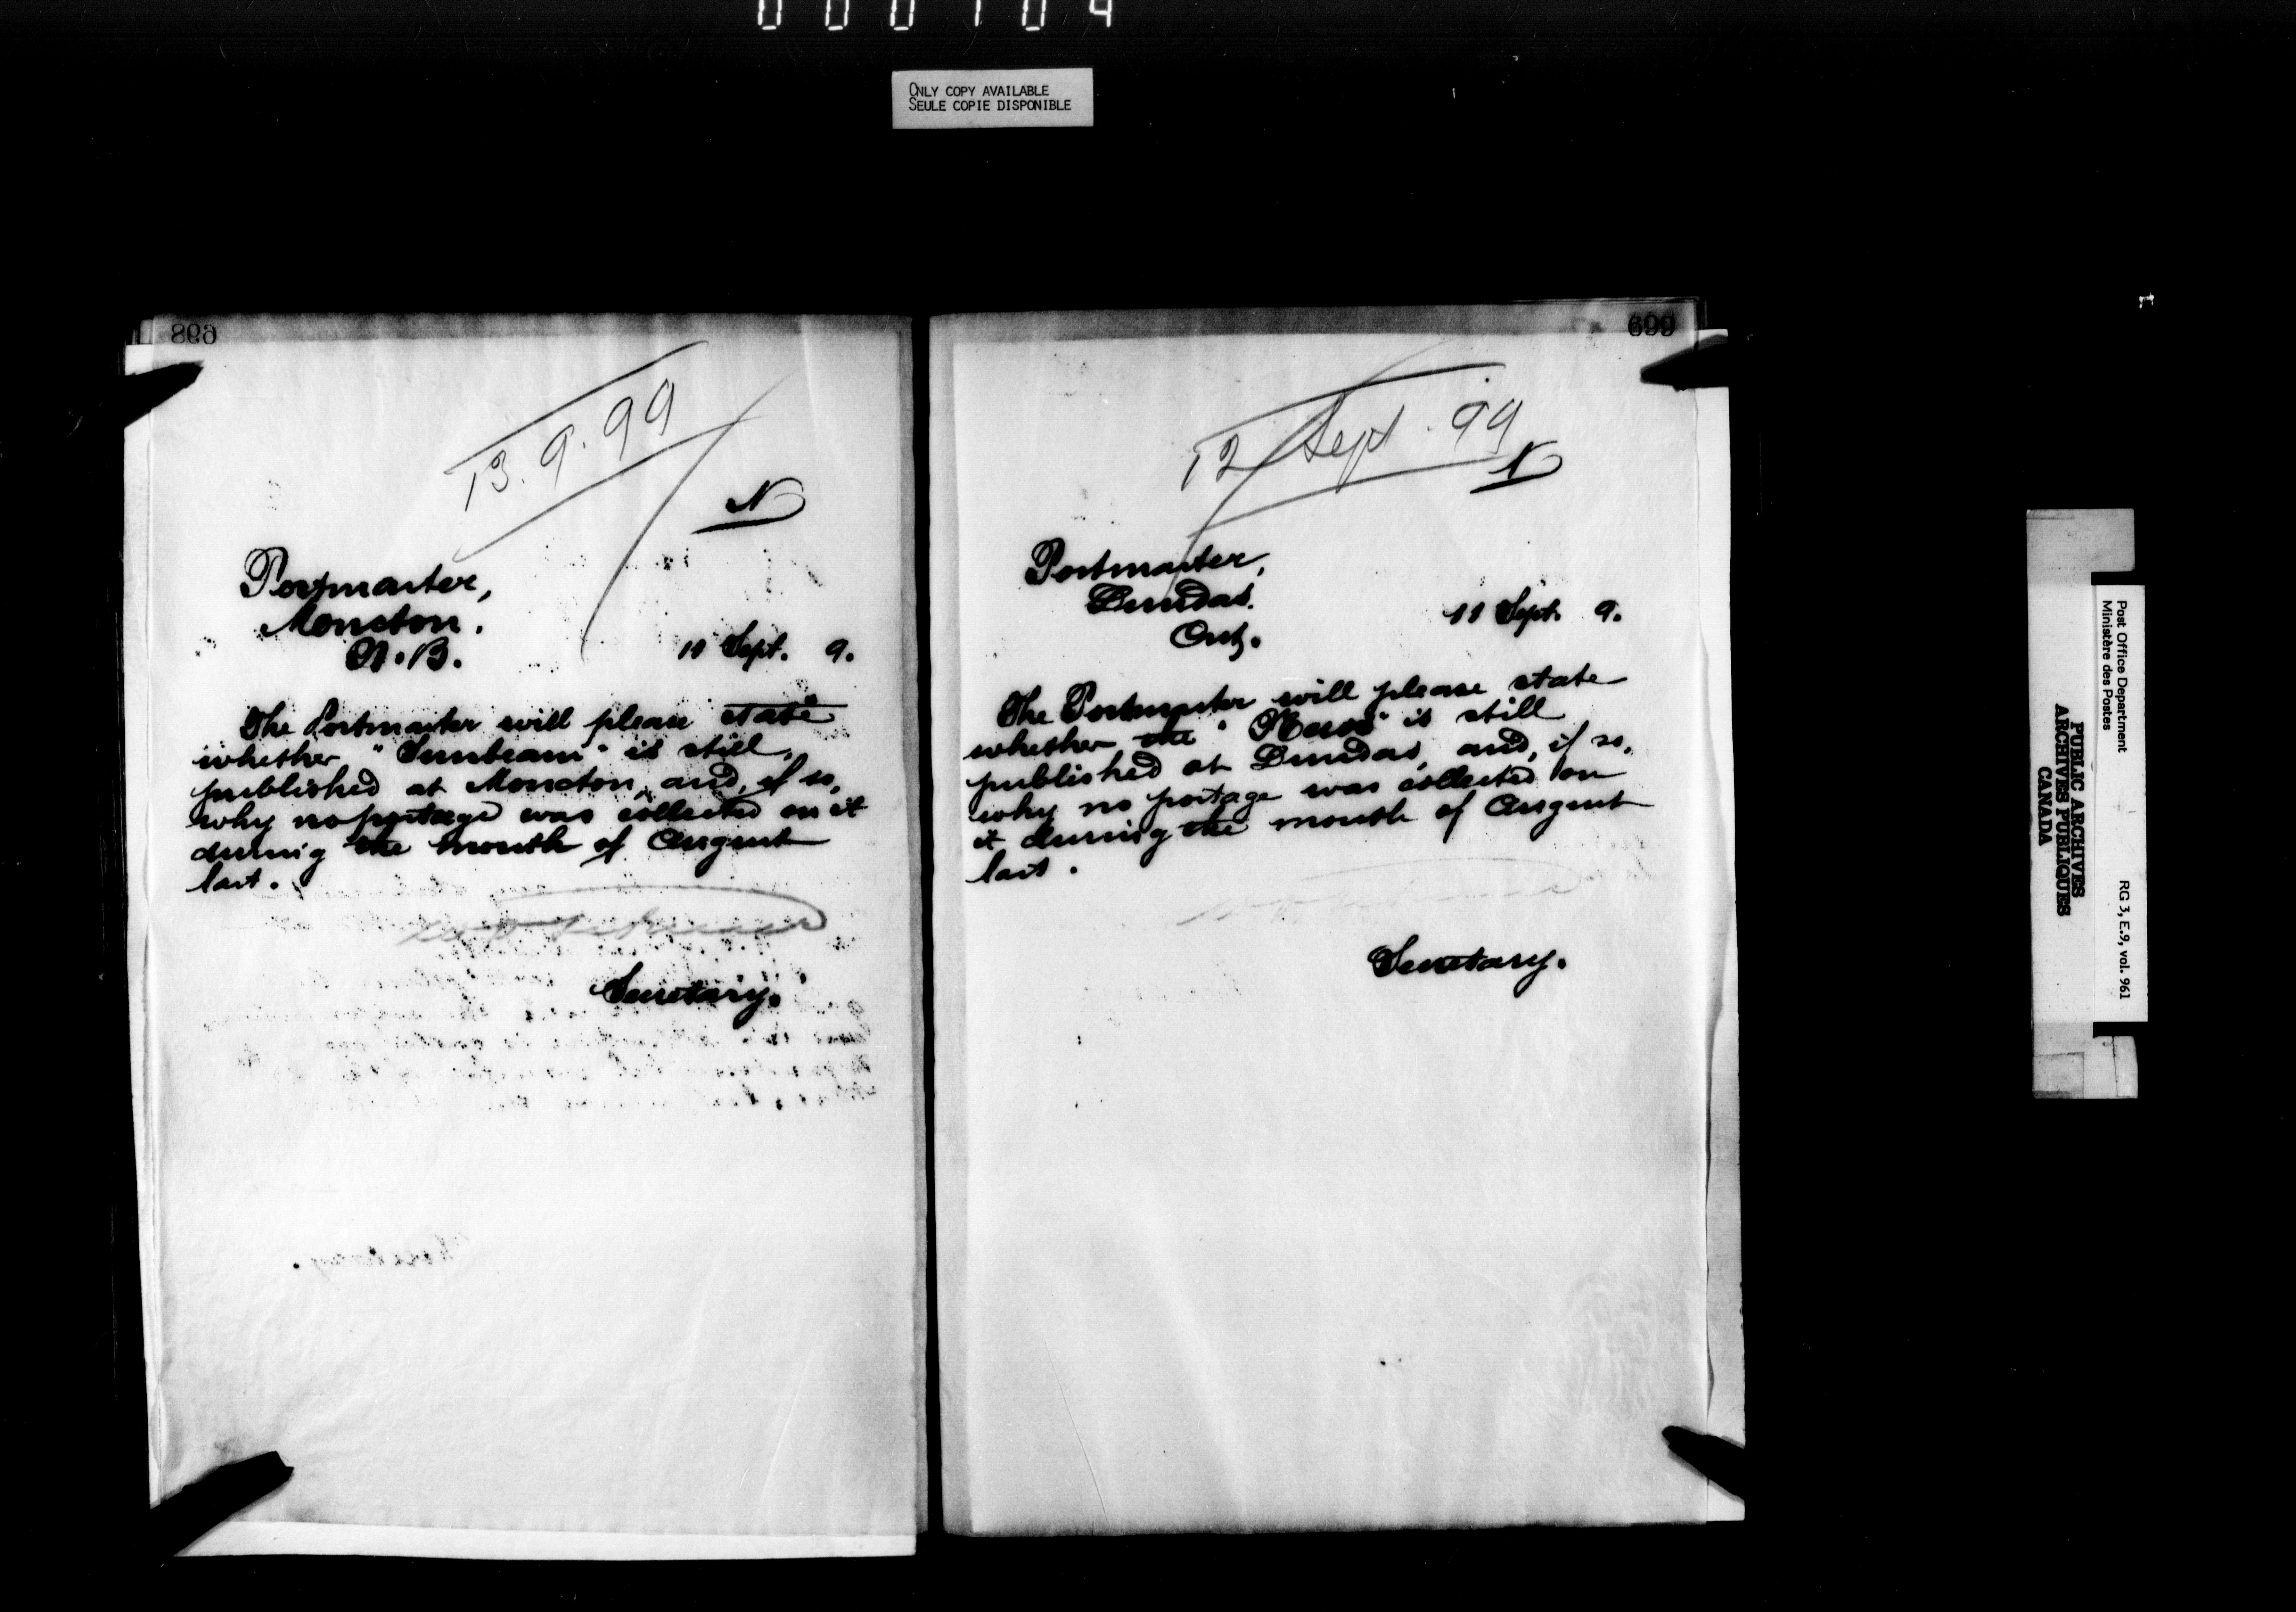 ONLY COPY AVAILABLE
SEULE COPIE DISPONIBLE
698
13.9.99
N
Postmaster,
Moncton.
N.B.
11 Sept. 9.
The Postmaster will please state
whether "Sunbeam" is still
published at Moncton, and, if so,
why no postage was collected on it
during the month of August
last.
Secretary.
699
12 Sept. 99
N
Postmaster,
Dundas.
Ont.
11 Sept. 9.
The Postmaster will please state
whether the "News" is still
published at Dundas, and, if so,
why no postage was collected on
it during the month of August
last.
Secretary.
Post Office Department
Ministère des Postes
RG 3, E.9, vol. 961
PUBLIC ARCHIVES
ARCHIVES PUBLIQUES
CANADA